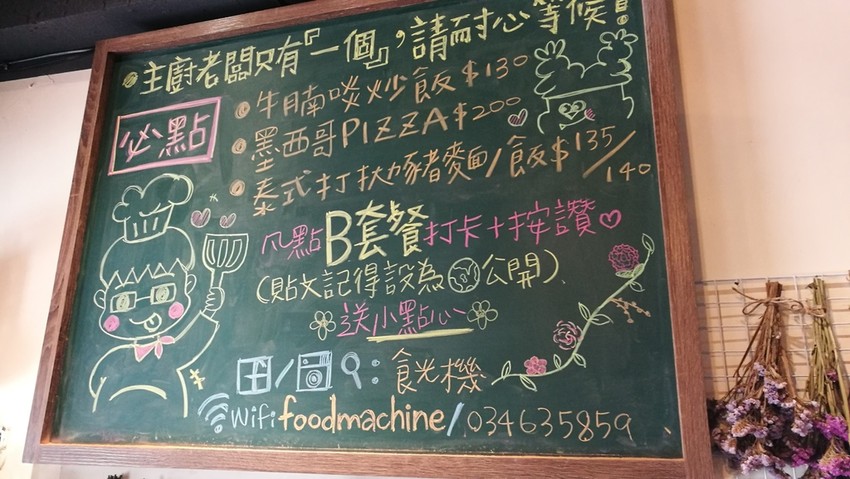 主廚老闆只有『一個』，請耐心等候！
必點
牛腩啖炒飯$130
墨西哥PIZZA$200
泰式打抛豬麵/飯$135/140
凡點B套餐打卡+按讚
(貼文記得設為公開)
送小點心
/：食光機
wifi foodmachine/034635859